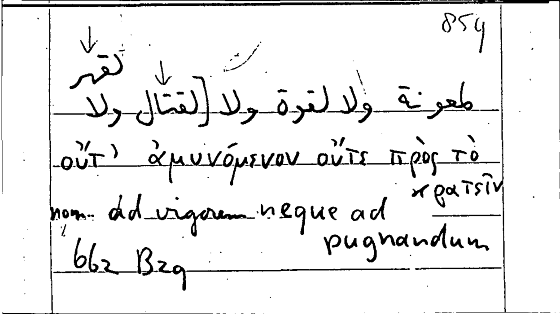 854
لقهر
طعونة ولا لقوة ولا [لقتال ولا
οὔτ' ἀμυνόμενον οὔτε πρὸς τὸ
κρατεῖν
non ad vigorem neque ad
pugnandum
662 B29